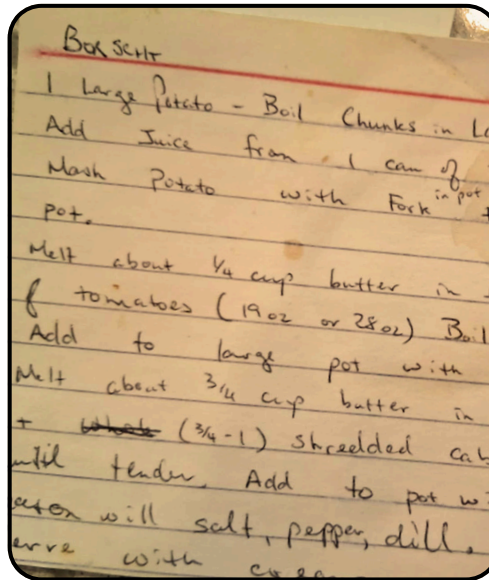 Borscht
1 Large Potato - Boil Chunks in
Add Juice from 1 can of
Mash Potato with Fork in pot
pot.
Melt about 1/4 cup butter in
& tomatoes (19oz or 28oz) Boil
Add to large pot with
Melt about 3/4 cup butter in
+ (3/4-1) shredded
until tender. Add to pot
will salt, pepper, dill.
with